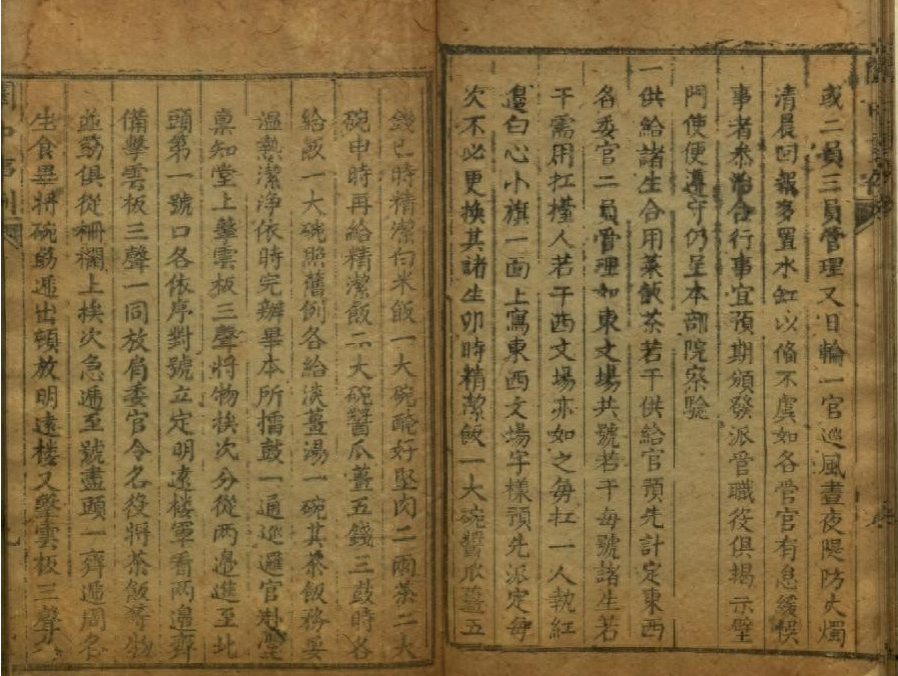 或二員三員管理又日輪一官巡風晝夜隄防火燭
清晨回報多置水缸以備不虞如各管官有怠緩悞
事者叅治合行事宜預期頒發派管職役俱揭示壁
門使便遵守仍呈本部院察驗
一供給諸生合用菜飯茶若干供給官預先計定東西
各委官二員管理如東文塲共號若干每號諸生若
干需用扛擡人若干西文塲亦如之每扛一人執紅
邊白心小旗一面上寫東西文塲字樣預先派定每
次不必更换其諸生卯時精潔飯一大碗醬瓜薑五
錢巳時精潔白米飯一大碗醃好堅肉二兩茶二大
碗申時再給精潔飯一大碗醬瓜薑五錢三鼓時各
給飯一大碗照舊例各給淡薑湯一碗其茶飯務要
温熱潔淨依時完辦畢本所擂鼓一通巡邏官赴堂
禀知堂上擊雲板三聲將物挨次分從兩邉進至北
頭第一號口各依序對號立定明遠楼軍看兩邉齊
備擊雲板三聲一同放肩委官令名役將茶飯等物
並筯俱從柵欄上挨次急遞至號盡頭一齊遞周各
生食畢將碗筯遞出頓放明遠楼又擊雲板三聲